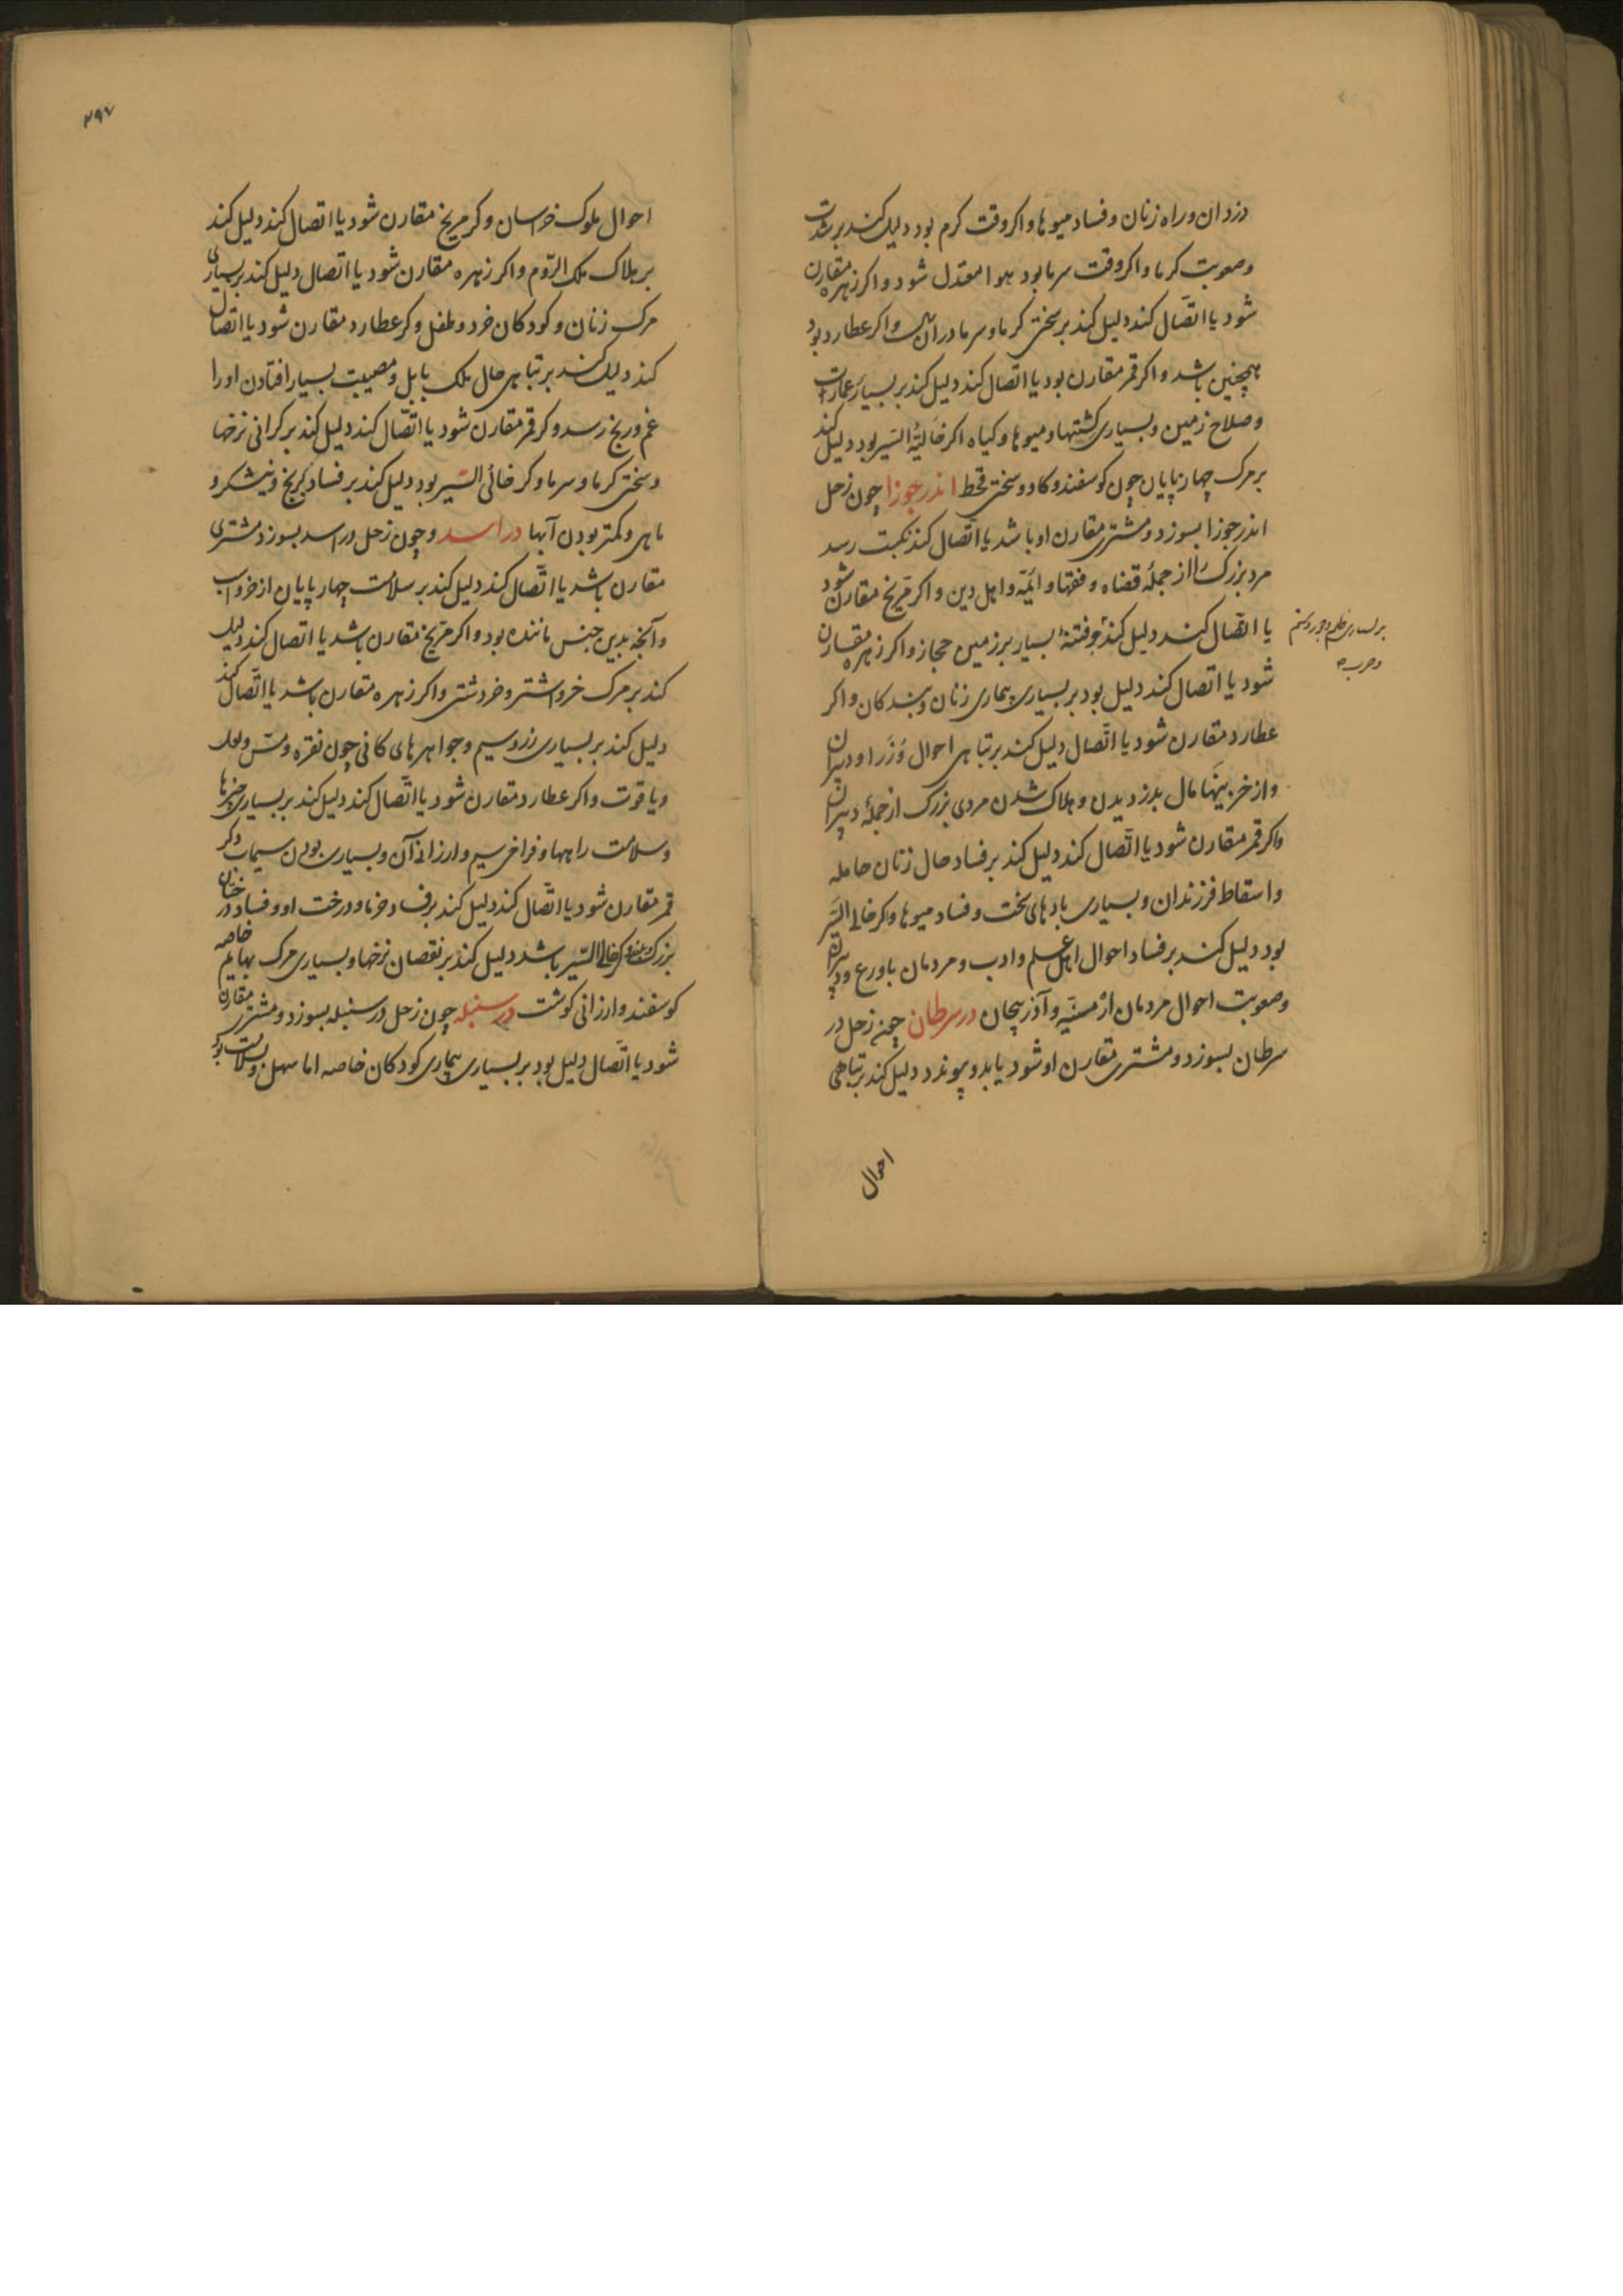 دزدان و راه زنان و فساد میوها و اکر وقت کرم بود دلیل کند بر شدت
و صعوبت کرما و اکر وقت سرما بود هوا معتدل شود و اکر زهره مقارن
شود یا اتّصال کند دلیل کند بر سختی کرما و سرما در آن سال و اکر عطارد بود
همچنین باشد و اکر قمر مقارن بود یا اتّصال کند دلیل کند بر بسیار عمارت
و صلاح زمین و بسیاری کشتها و میوها و کیاه اکر خالیة السّیر بود دلیل کند
بر مرک چهارپایان چون کوسفند و کاو و سختی قحط اندر جوزا چون زحل
اندر جوزا بسوزد و مشتری مقارن او باشد یا اتّصال کند نکبت رسد
مرد بزرک را از جملهٔ قضاه و فقها و ائمّه و اهل دین و اکر مرّیخ مقارن شود
یا اتّصال کند دلیل کند و فتنهٔ بسیار بر زمین حجاز و اکر زهره مقارن
بر بسیاری ظلم و جور و ستم
و حرب
شود یا اتصال کند دلیل بود بر بسیاری بیماری زنان و بندکان و اکر
عطارد مقارن شود یا اتّصال دلیل کند بر تباهی احوال وُزَرا و دبیران
و از خزینها مال بدزدیدن و هلاک شدن مردی بزرک از جملهٔ دبیران
و اکر قمر مقارن شود یا اتّصال کند دلیل کند بر فساد حال زنان حامله
و اسقاط فرزندان و بسیاری بادهای سخت و فساد میوها و کر خالی السّیر
بود دلیل کند بر فساد احوال اهل علم و ادب و مردمان با ورع و دبیران
و صعوبت احوال مردمان ارمنیّه و آذربیجان در سرطان چون زحل در
سرطان بسوزد و مشتری مقارن او شود یا بدو پیوندد دلیل کند بر تباهی
احوال
۲۹۷
احوال ملوک خراسان و کر مریخ مقارن شود یا اتصال کند دلیل کند
بر هلاک ملک الرّوم و اکر زهره مقارن شود یا اتصال دلیل کند بر بسیاری
مرک زنان و کودکان خرد و طفل و کر عطارد مقارن شود یا اتصال
کند دلیل کند بر تباهی حال ملک بابل و مصیبت بسیار افتادن او را
غم و رنج رسد و کر قمر مقارن شود یا اتّصال کند دلیل کند بر کرانی نرخها
و سختی کرما و سرما و کر خالی السّیر بود دلیل کند بر فساد برنج و نیشکر و
ماهی و کمتر بودن آبها در اسد و چون زحل در اسد بسوزد و مشتری
مقارن باشد یا اتّصال کند دلیل کند بر سلامت چهارپایان از خر و اسب
و آنچه بدین جنس ماننده بود و اکر مرّیخ مقارن باشد یا اتصال کند دلیل
کند بر مرک خر و اشتر و و اکر زهره مقارن باشد یا اتّصال کند
دلیل کند بر بسیاری زر و سیم و جواهرهای کانی چون نقره و مس و لعل
و یاقوت و اکر عطارد مقارن شود یا اتّصال کند دلیل کند بر بسیاری خیرها
و سلامت راهها و فراخی سیم و ارزانی آن و بسیاری بودن سیماب و کر
قمر مقارن شود یا اتّصال کند دلیل کند بر فساد خرما و درخت او و فساد در ختان
بزرک و کر خالی السّیر باشد دلیل کند بر نقصان نرخها و بسیاری مرک بهایم خاصه
کوسفند و ارزانی کوشت در سنبله چون زحل در سنبله بسوزد و مشتری مقارن
شود یا اتّصال دلیل بود بر بسیاری بیماری کودکان خاصه اما سهل و سلامت بود